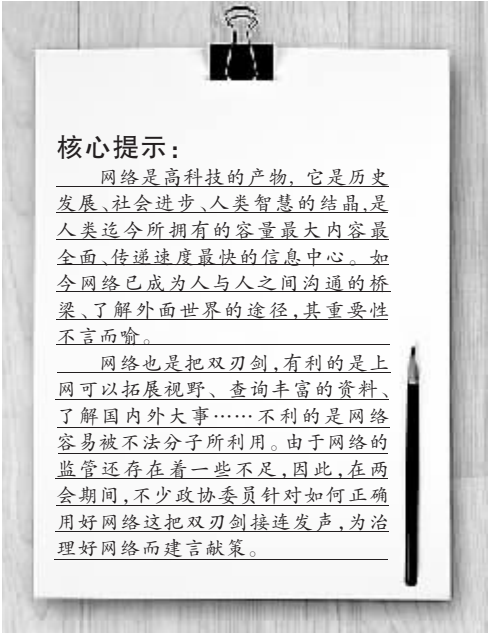 核心提示：
网络是高科技的产物，它是历史
发展、社会进步、人类智慧的结晶,是
人类迄今所拥有的容量最大内容最
全面、传递速度最快的信息中心。如
今网络已成为人与人之间沟通的桥
梁、了解外面世界的途径,其重要性
不言而喻。
网络也是把双刃剑,有利的是上
网可以拓展视野、查询丰富的资料、
了解国内外大事……不利的是网络
容易被不法分子所利用。由于网络的
监管还存在着一些不足,因此,在两
会期间,不少政协委员针对如何正确
用好网络这把双刃剑接连发声,为治
理好网络而建言献策。